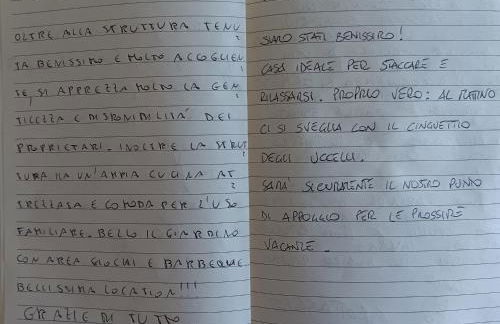 OLTRE ALLA STRUTTURA TENU
TA BENISSIMO E MOLTO ACCOGLIEN
TE, SI APPREZZA MOLTO LA GEN
TILEZZA E DISPONIBILITÀ DEI
PROPRIETARI. INOLTRE LA STRUT
TURA HA UN'AMPIA CUCINA AT
TREZZATA E COMODA PER L'USO
FAMILIARE. BELLO IL GIARDINO
CON AREA GIOCHI E BARBEQUE
BELLISSIMA LOCATION!!!
GRAZIE DI TUTTO
SIAMO STATI BENISSIMO!
CASA IDEALE PER STACCARE E
RILASSARSI. PROPRIO VERO: AL MATTINO
CI SI SVEGLIA CON IL CINGUETTIO
DEGLI UCCELLI.
SARA' SICURAMENTE IL NOSTRO PUNTO
DI APPOGGIO PER LE PROSSIME
VACANZE.